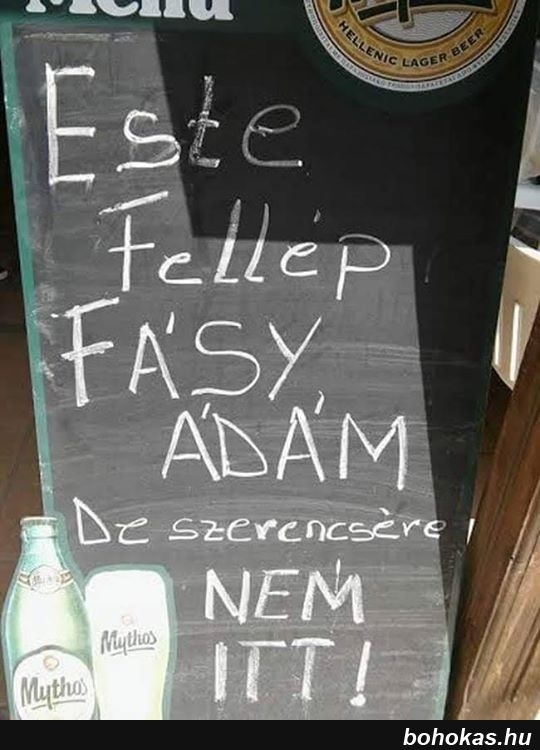 Menu
HELLENIC LAGER BEER
Este
fellép
FÁSY
ÁDÁM
De szerencsére
NEM
ITT!
Mythos
Mythos
bohokas.hu